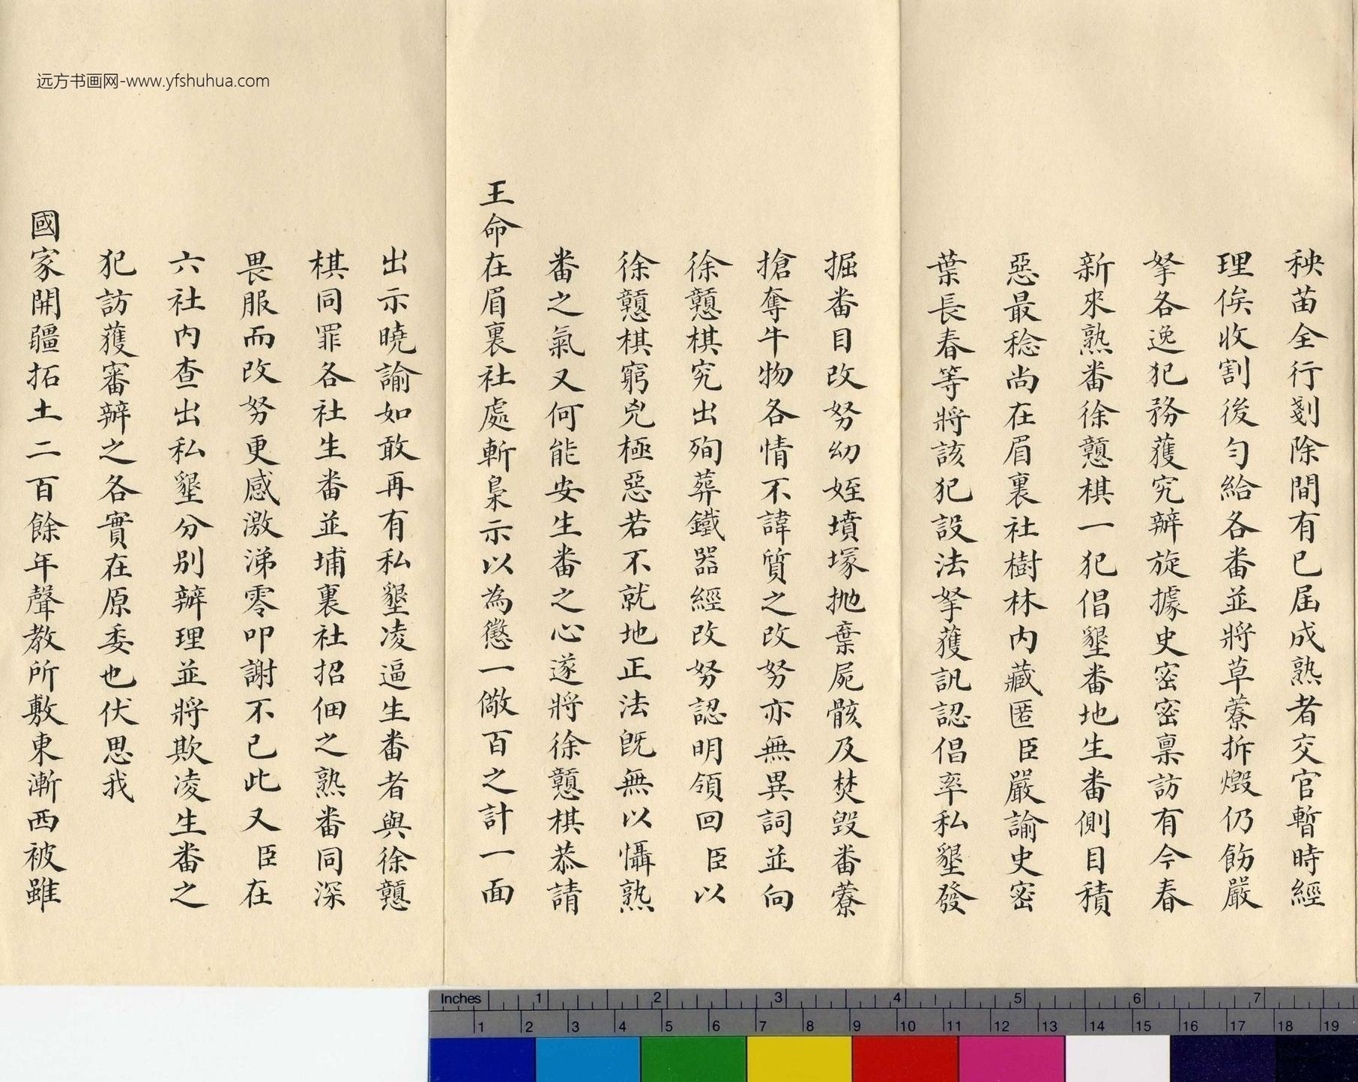 远方书画网-www.yfshuhua.com
秧苗全行剗除間有已屆成熟者交官暫時經
理俟收割後勻給各番並將草藔拆燬仍飭嚴
拏各逸犯務獲究辦旋據史密密稟訪有今春
新來熟番徐戇棋一犯倡墾番地生番側目積
惡最稔尚在眉裏社樹林內藏匿臣嚴諭史密
葉長春等將該犯設法拏獲訊認倡率私墾發
掘番目改努幼姪墳塚拋棄屍骸及焚毀番藔
搶奪牛物各情不諱質之改努亦無異詞並向
徐戇棋究出殉葬鐵器經改努認明領回臣以
徐戇棋窮兇極惡若不就地正法既無以懾熟
番之氣又何能安生番之心遂將徐戇棋恭請
王命在眉裏社處斬梟示以為懲一儆百之計一面
出示曉諭如敢再有私墾凌逼生番者與徐戇
棋同罪各社生番並埔裏社招佃之熟番同深
畏服而改努更感激涕零叩謝不已此又臣在
六社內查出私墾分別辦理並將欺凌生番之
犯訪獲審辦之各實在原委也伏思我
國家開疆拓土二百餘年聲教所敷東漸西被雖
Inches 1 2 3 4 5 6 7
1 2 3 4 5 6 7 8 9 10 11 12 13 14 15 16 17 18 19